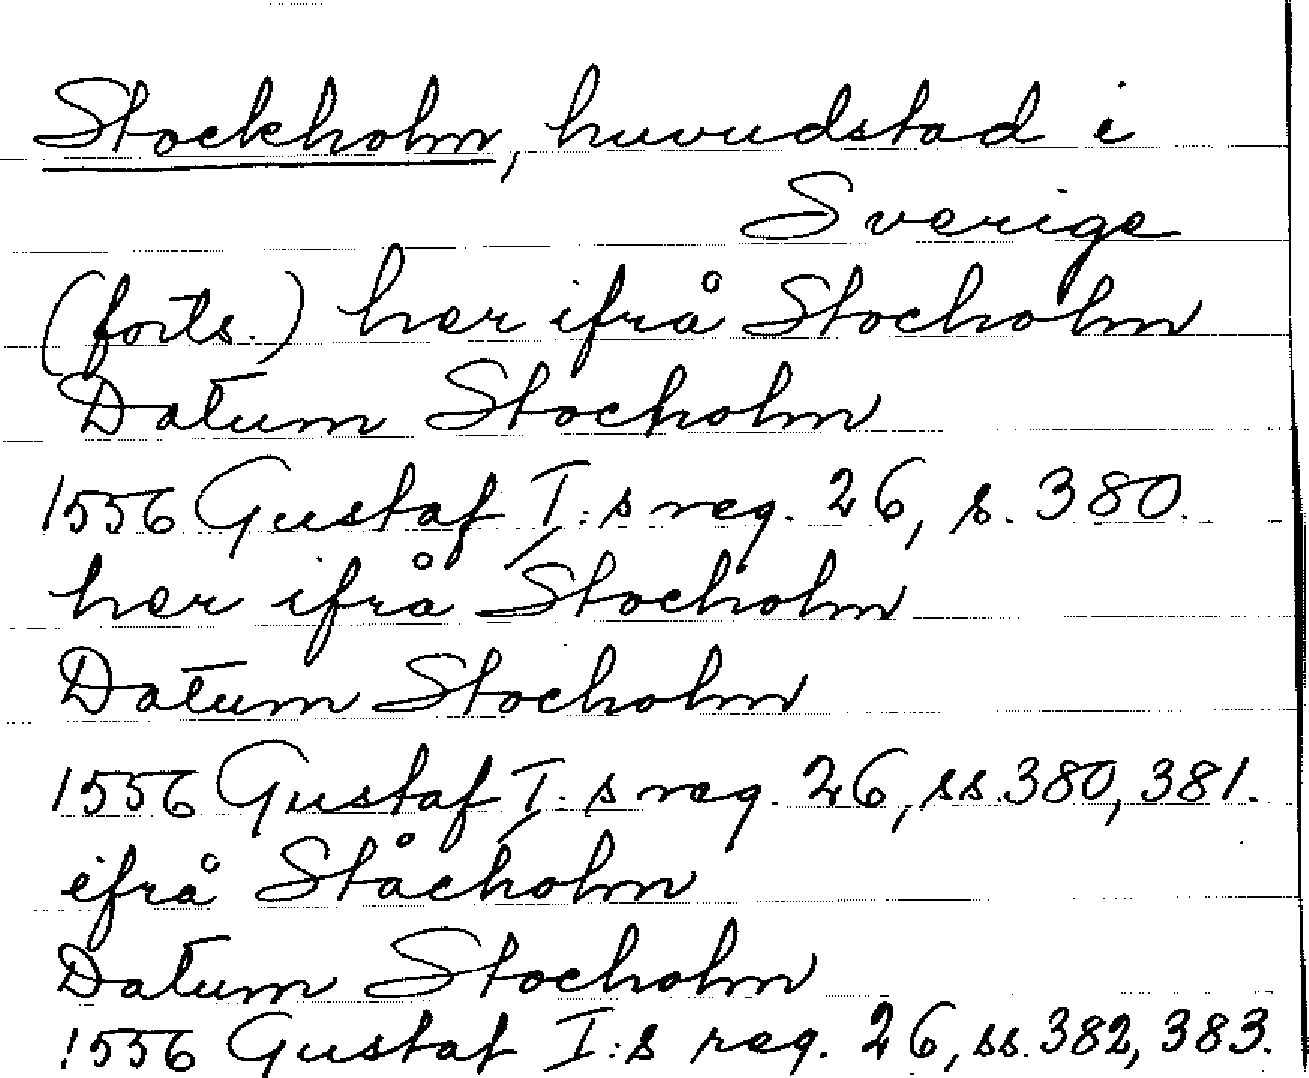 Stockholm, huvudstad i
Sverige
(forts.) her ifrå Stocholm
Datum Stocholm
1556 Gustaf I:s reg. 26, s. 380.
her ifrå Stocholm
Datum Stocholm
1556 Gustaf I:s reg. 26, ss. 380, 381.
ifrå Ståcholm
Datum Stocholm
1556 Gustaf I:s reg. 26, ss. 382, 383.